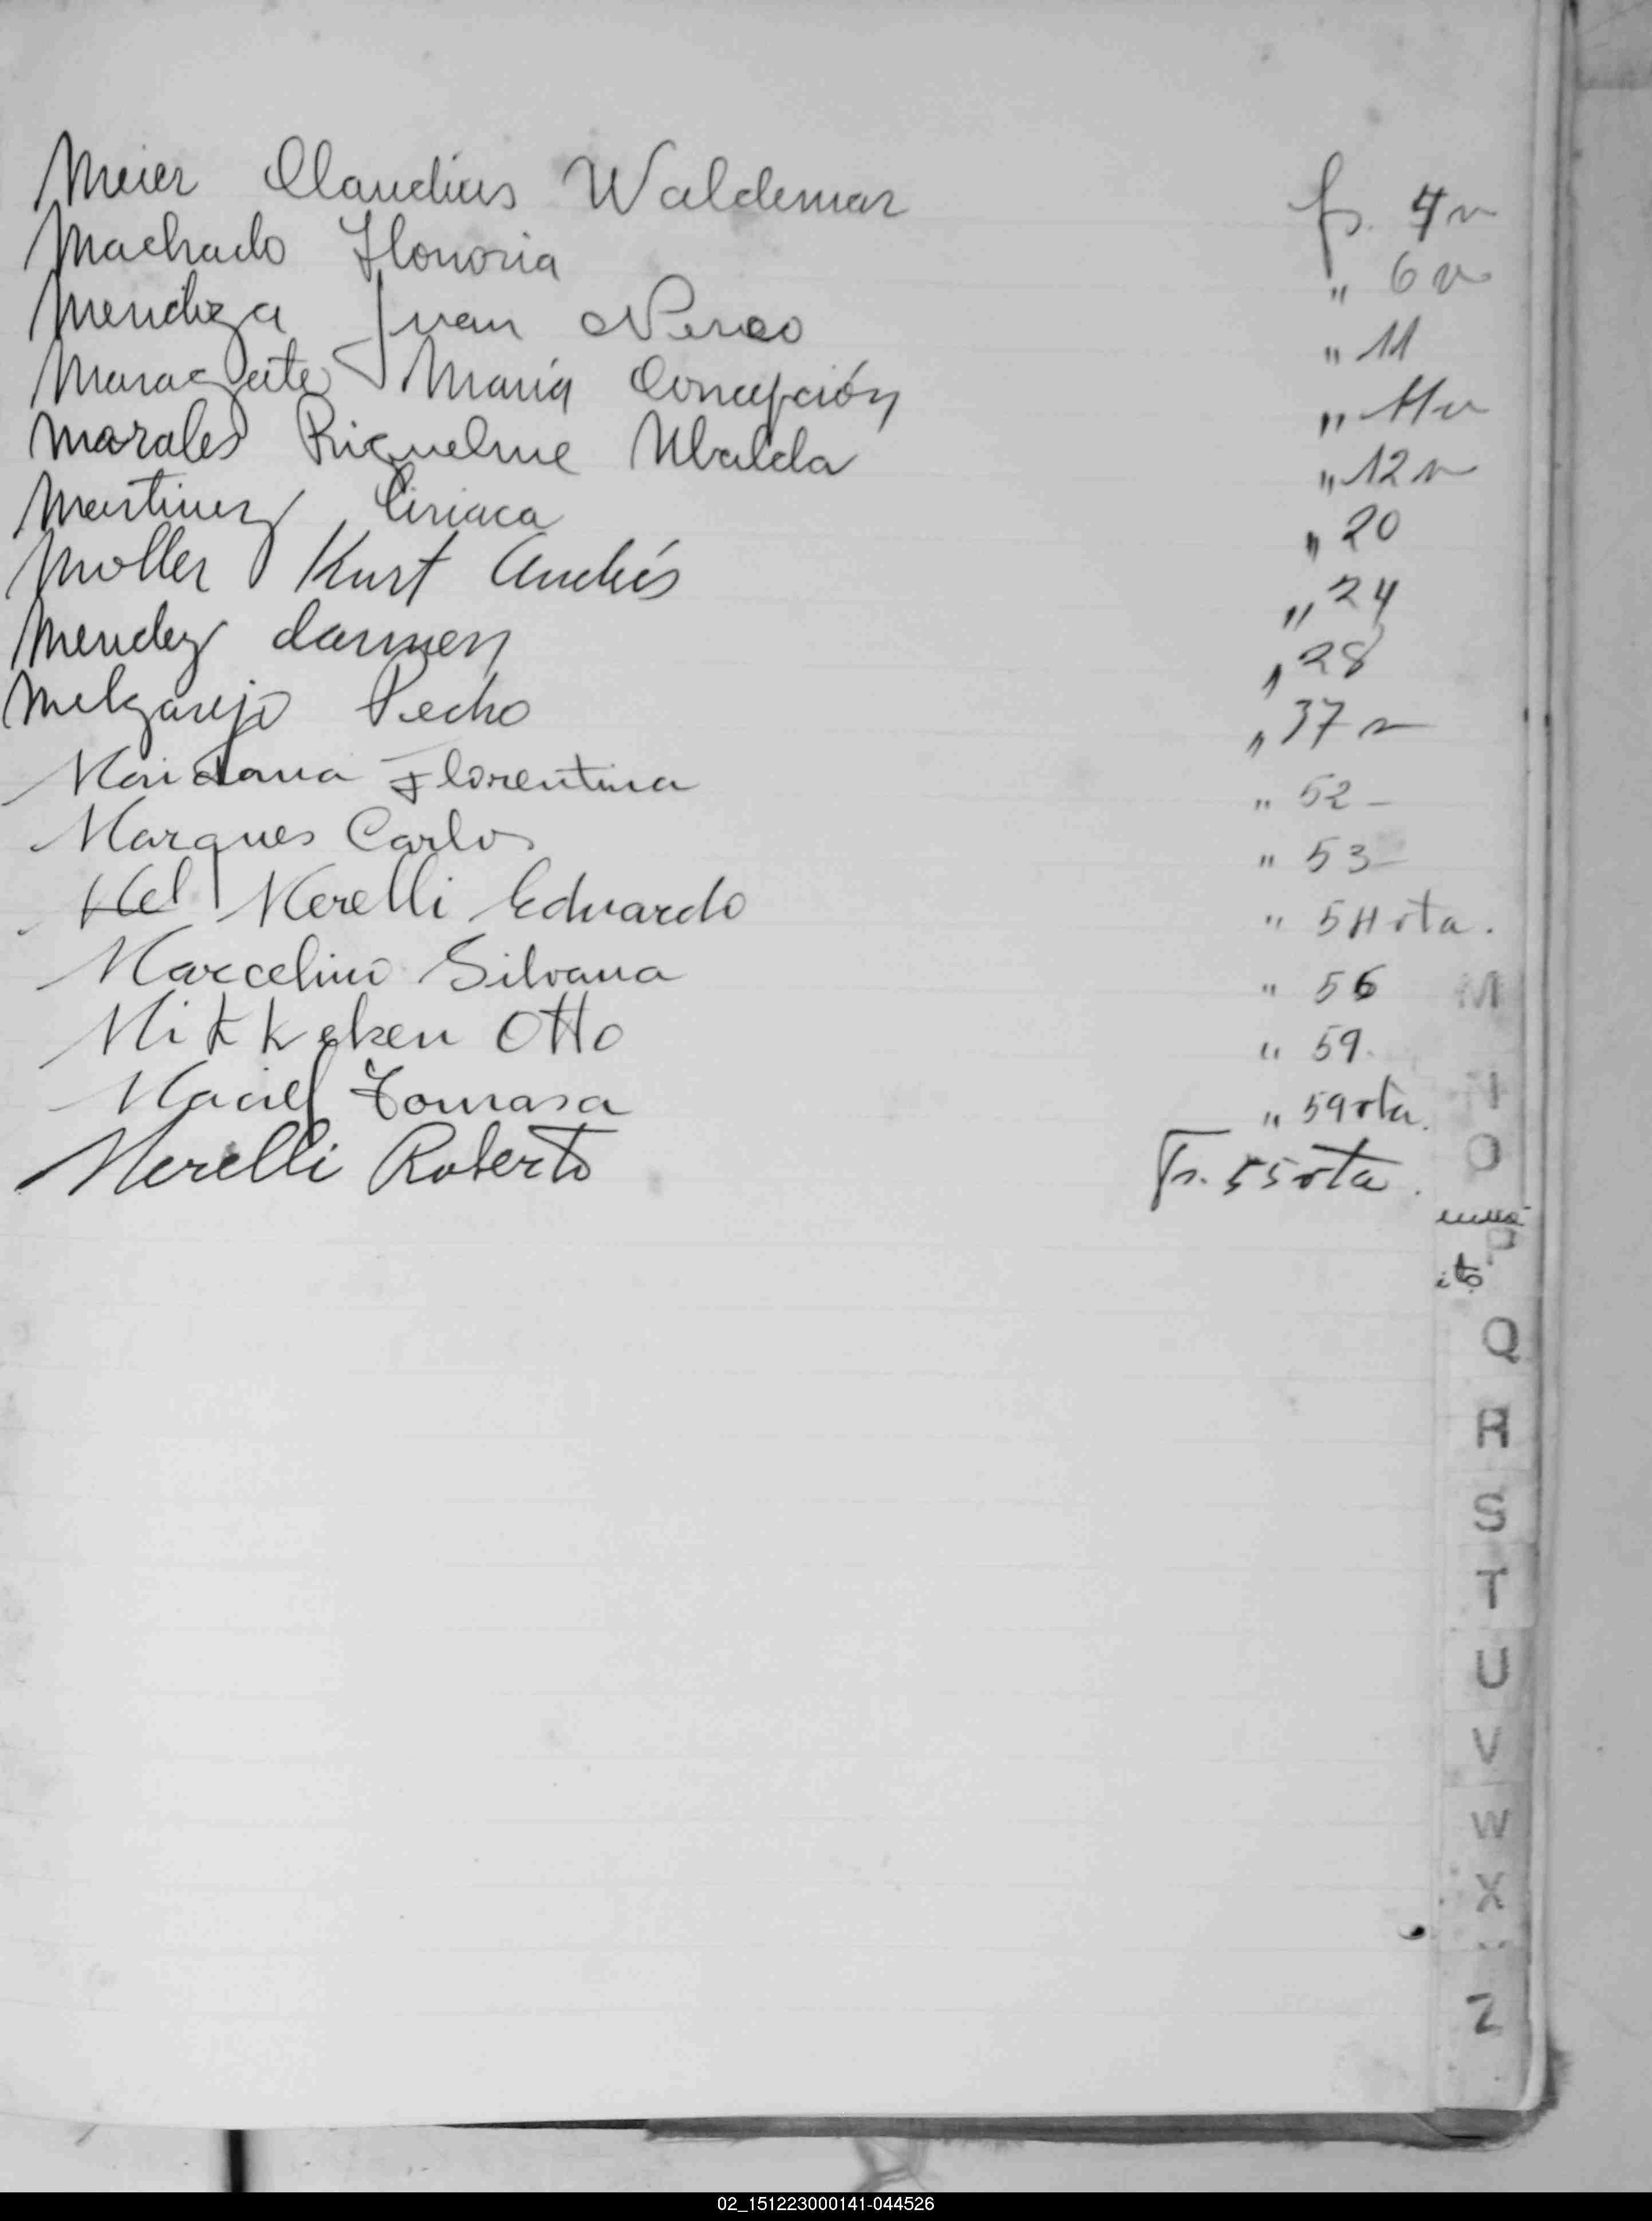 Meier Claudius Waldemar fs. 4 v
Machado Honoria " 6 v
Mendoza Juan Nereo " 11
Maraguite María Concepción " 11 v
Morales Riquelme Ubalda " 12 v
Martinez Ciriaca " 20
Moller Kurt Andrés " 24
Mendez Carmen " 28
Melgarejo Pedro " 37 v
Maidana Florentina " 52 -
Marques Carlos " 53 -
Mel Merelli Eduardo " 54 vta.
Marcelino Silvana " 56
Otto " 59.
Maciel Tomasa " 59 vta.
Merelli Roberto Fs. 55 vta.
M
O
P
Q
R
S
T
U
V
W
X
Z
02_151223000141-044526